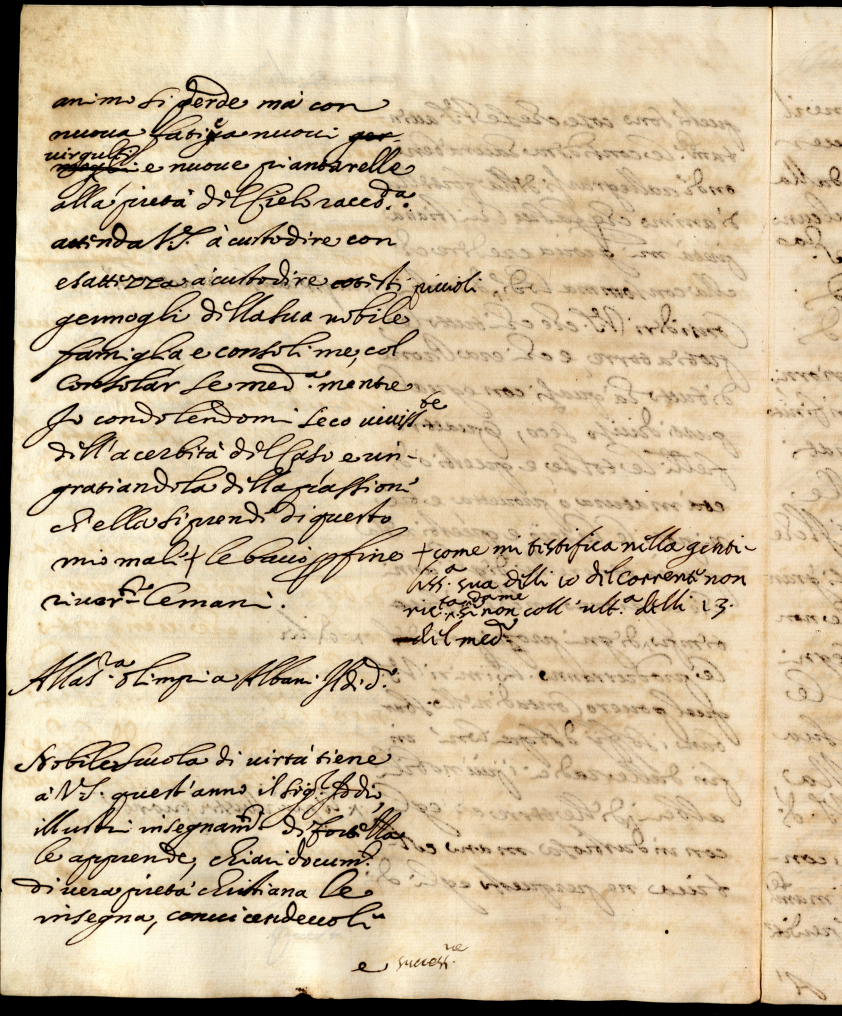 animo si perde mà con
nuova fatica nuovi per
virgulti
e nuove piantarelle
alla pietà del Cielo racc.da
attenda V.S. à custodire con
esattezza à custodire cotesti piccioli
germogli della sua nobile
famiglia e consoli me, col
consolar se med.a mentre
Io condolendomi seco viviss.te
dell'acerbità del Caso e rin-
gratiandola della passione
ch'ella si prende di questo
mio male + le bacio p fine
river.te le mani.
+ come mi testifica nella genti-
liss.a sua delli 10 del corrente non
non coll'ult.a delli 13.
del med.o
Alla S.a Olimpia Albani
Nobile scuola di virtù tiene
à V.S. quest'anno il Sig.r Iddio,
illustri insegnam.ti di fortezza
le apprende, chiari docum.ti
di vera pietà christiana le
insegna, con vicendevoli
e success.ve